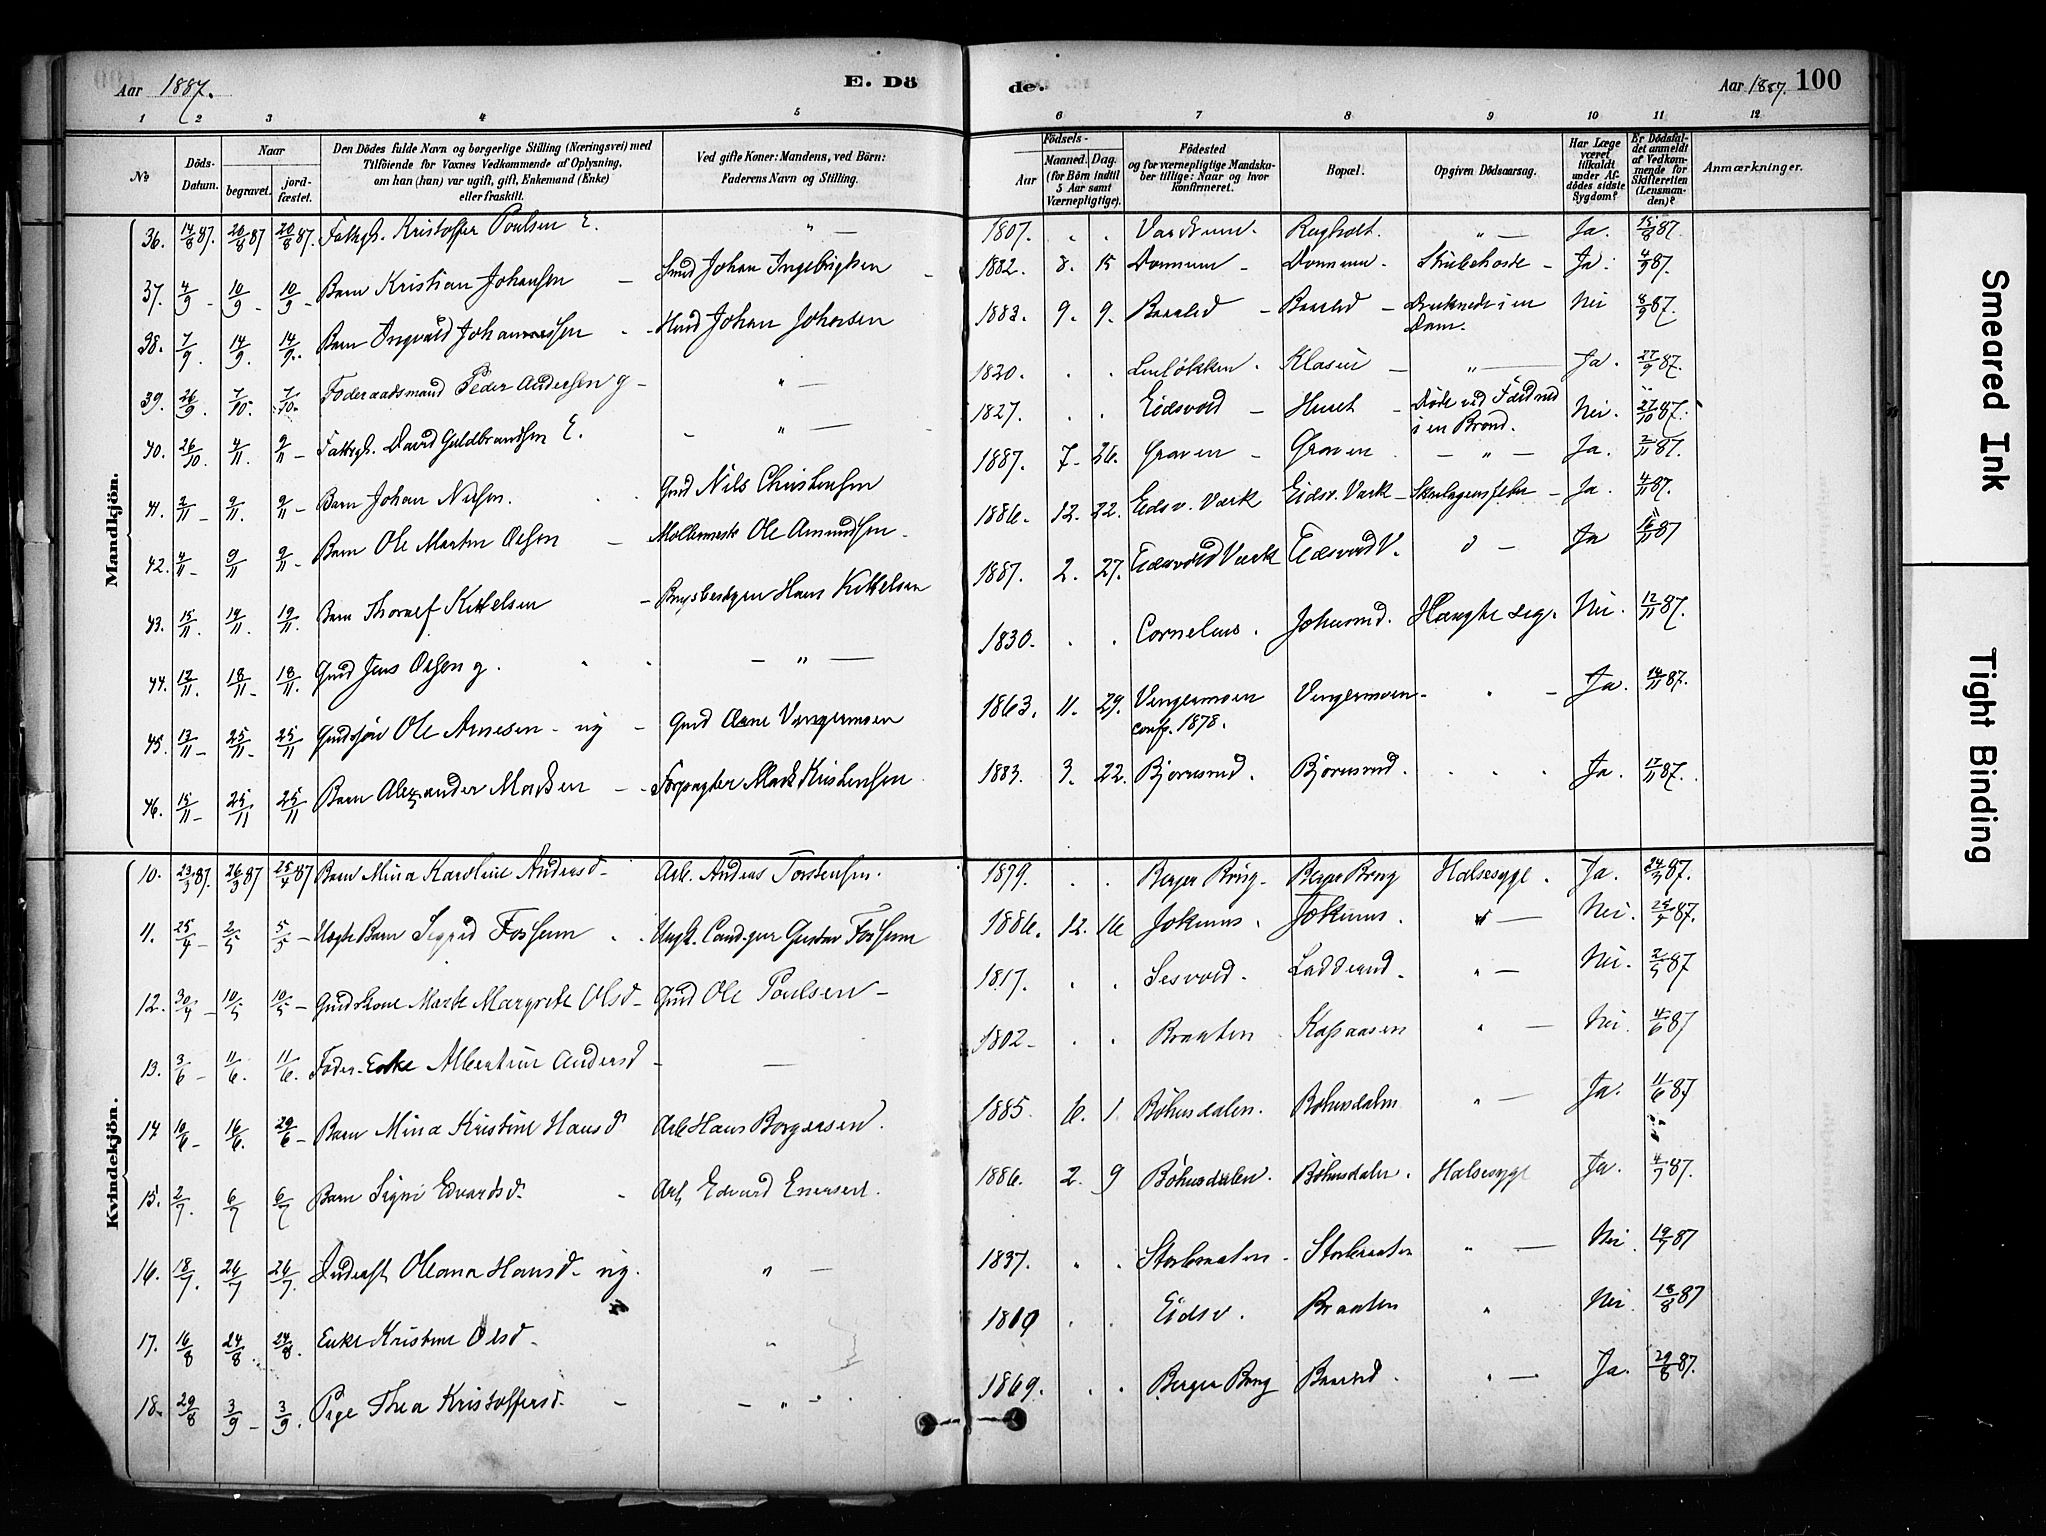 Aar 1887.
E. Dö
de.
Aar 1887. 100
1 2 3 4 5 6 7 8 9 10 11 12
No
Döds-Datum.
Naar
begravet.
jord-fæstet.
Den Dödes fulde Navn og borgerlige Stilling (Næringsvei) med
Tilföiende for Voxnes Vedkommende af Oplysning,
om han (hun) var ugift, gift, Enkemand (Enke)
eller fraskilt.
Ved gifte Koner: Mandens, ved Börn:
Faderens Navn og Stilling.
Födsels-
Aar
Maaned. Dag.
(for Börn indtil
5 Aar samt
Værnepligtige).
Födested
og for værnepligtige Mandska-
ber tillige: Naar og hvor
konfirmeret.
Bopæl.
Opgiven Dödsaarsag.
Har Læge
været
tilkaldt
under Af-
dödes sidste
Sygdom?
Er Dödsfal-
det anmeldt
af Vedkom-
mende for
Skifteretten
(Lensman-
den)?
Anmærkninger.
Mandkjön.
36. 14/8 87. 20/8 87 20/8 87. Fattigl. Kristoffer Poulsen E. " — 1807. Ja. 15/8 87.
37. 4/9 10/9 10/9 Barn Kristian Johansen Smed Johan Ingebrigtsen 1882. 8. 15 Donnum Donnum Strubehoste Ja. 4/9 87.
38. 7/9 14/9 14/9 Barn Ingvald Johannessen Johan Johansen 1883. 9. 9. Baarlid Baarlid Druknede i en Dam. Nei 8/9 87.
39. 26/9 7/10 7/10 Foderaadsmand Peder Andersen g " — 1820. Lenløkken Ja. 27/9 87.
40. 26/10 4/11 9/11 Fattigl. David Guldbrandsen E. " — 1827. Eidsvold Huset Døde ved Fald ned i en Brønd. Nei. 27/10 87.
41. 2/11 9/11 9/11 Barn Johan Nilsen. Gmd Nils Christensen 1887 7 26. Graven Graven " Ja. 2/11 87.
42. 4/11 9/11 9/11 Barn Ole Martin Olsen Ole Amundsen. 1886. 12. 22. Eidsv. Værk Eidsv. Værk Skarlagensfeber Ja. 4/11 87.
43. 15/11 19/11 19/11 Barn Thoralf Kittelsen Brugsbestyrer Hans Kittelsen 1887. 2. 27. Eidsvold Værk Eidsvold V. Ja 16/11 87
44. 12/11 18/11 18/11 Gmd Jens Olsen g. — " — 1830. Cornelius. Johnsrud. Hængte sig. Nei. 12/11 87.
45. 13/11 25/11 25/11 Gmdssøn Ole Arnesen ug Gmd Arne Vengermoen 1863. 11. 29. Vengermoen conf. 1878. Vengermoen Ja. 14/11 87.
46. 15/11 25/11 25/11 Barn Alexander Madsen Forpagter Mads Kristensen 1883. 3. 22. Bjørnsrud. Bjørnsrud. Ja. 17/11 87.
Kvindekjön.
10. 23/3 87. 26/3 87 25/4 87 Barn Mina Karoline Andersd. Arb. Andreas Torstensen. 1879. Berger Brug Berger Brug Halsesyge. Ja. 24/3 87.
11. 25/4 2/5 5/5 Uægte Barn Sigrid Fossum Ungk. Gustav Fossum 1886. 12. 16 Jokums. Jokums. " — Nei. 25/4 87.
12. 30/4 10/5 10/5 Gmdskone Marte Margrete Olsd Gmd Ole Poulsen 1817. Sesvold. Laddrud. " — Nei. 2/5 87
13. 3/6 11/6 11/6 Foder. Enke Albertine Andersd — 1802 Braaten " — Nei. 4/6 87
14 10/6 16/6 29/6 Barn Mina Kristine Hansd Arb Hans Borgersen. 1885 6. 1. Bøhnsdalen. Bøhnsdalen " — Ja. 11/6 87
15. 2/7 6/7 6/7 Barn Signe Edvardsd. Arb Edvard Enersen. 1886. 2. 9 Bøhnsdalen. Bøhnsdalen. Halsesyge Ja. 4/7 87.
16. 18/7 26/7 26/7 Inderst Oleana Hansd ug. " — 1837. Storbraaten Storbraaten " — Nei 19/7 87
17. 16/8 24/8 24/8 Enke Kristine Olsd " Eidsv. Braaten " Nei 18/8 87
18. 29/8 3/9 3/9 Pige Thea Kristoffersd. " 1869. Berger Brug Baarlid " — Ja. 29/8 87.
Smeared Ink
Tight Binding